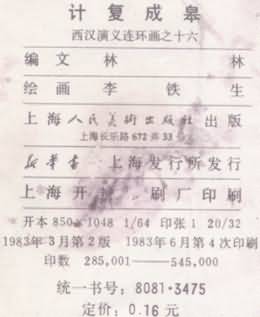 计复成皋
西汉演义连环画之十六
编文 林林
绘画 李铁生
上海人民美术出版社出版
上海长乐路672弄33号
新华书店上海发行所发行
上海开 刷厂印刷
开本 850×1048 1/64 印张 1 20/32
1983年3月第2版 1983年6月第4次印刷
印数 285,001——545,000
统一书号：8081·3475
定价：0.16元